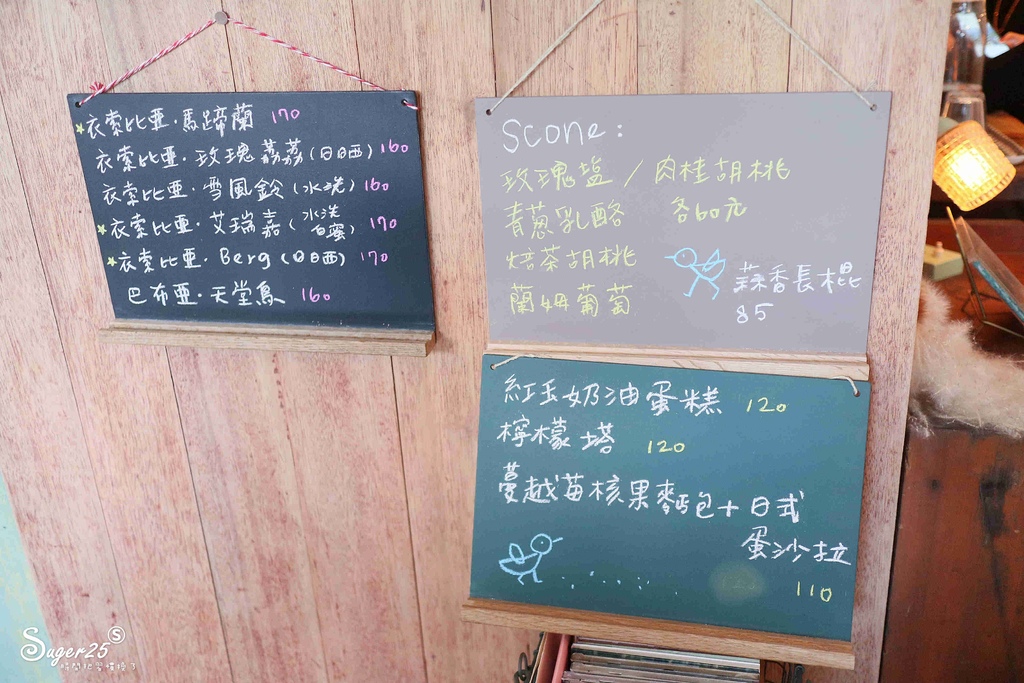 ★衣索比亞·馬蹄蘭 170
衣索比亞·玫瑰荔荔(日日西) 160
衣索比亞·雪風鈴(水洗) 160
★衣索比亞·艾瑞嘉(水洗白蜜) 170
★衣索比亞·Berg(日日西) 170
巴布亞·天堂鳥 160
Scone:
玫瑰塩/肉桂胡桃
青蔥乳酪 各60元
焙茶胡桃
蘭姆葡萄
蒜香長棍
85
紅玉奶油蛋糕 120
檸檬塔 120
蔓越莓核果麵包+日式
蛋沙拉
110
Suger25 S
時間把習慣換了